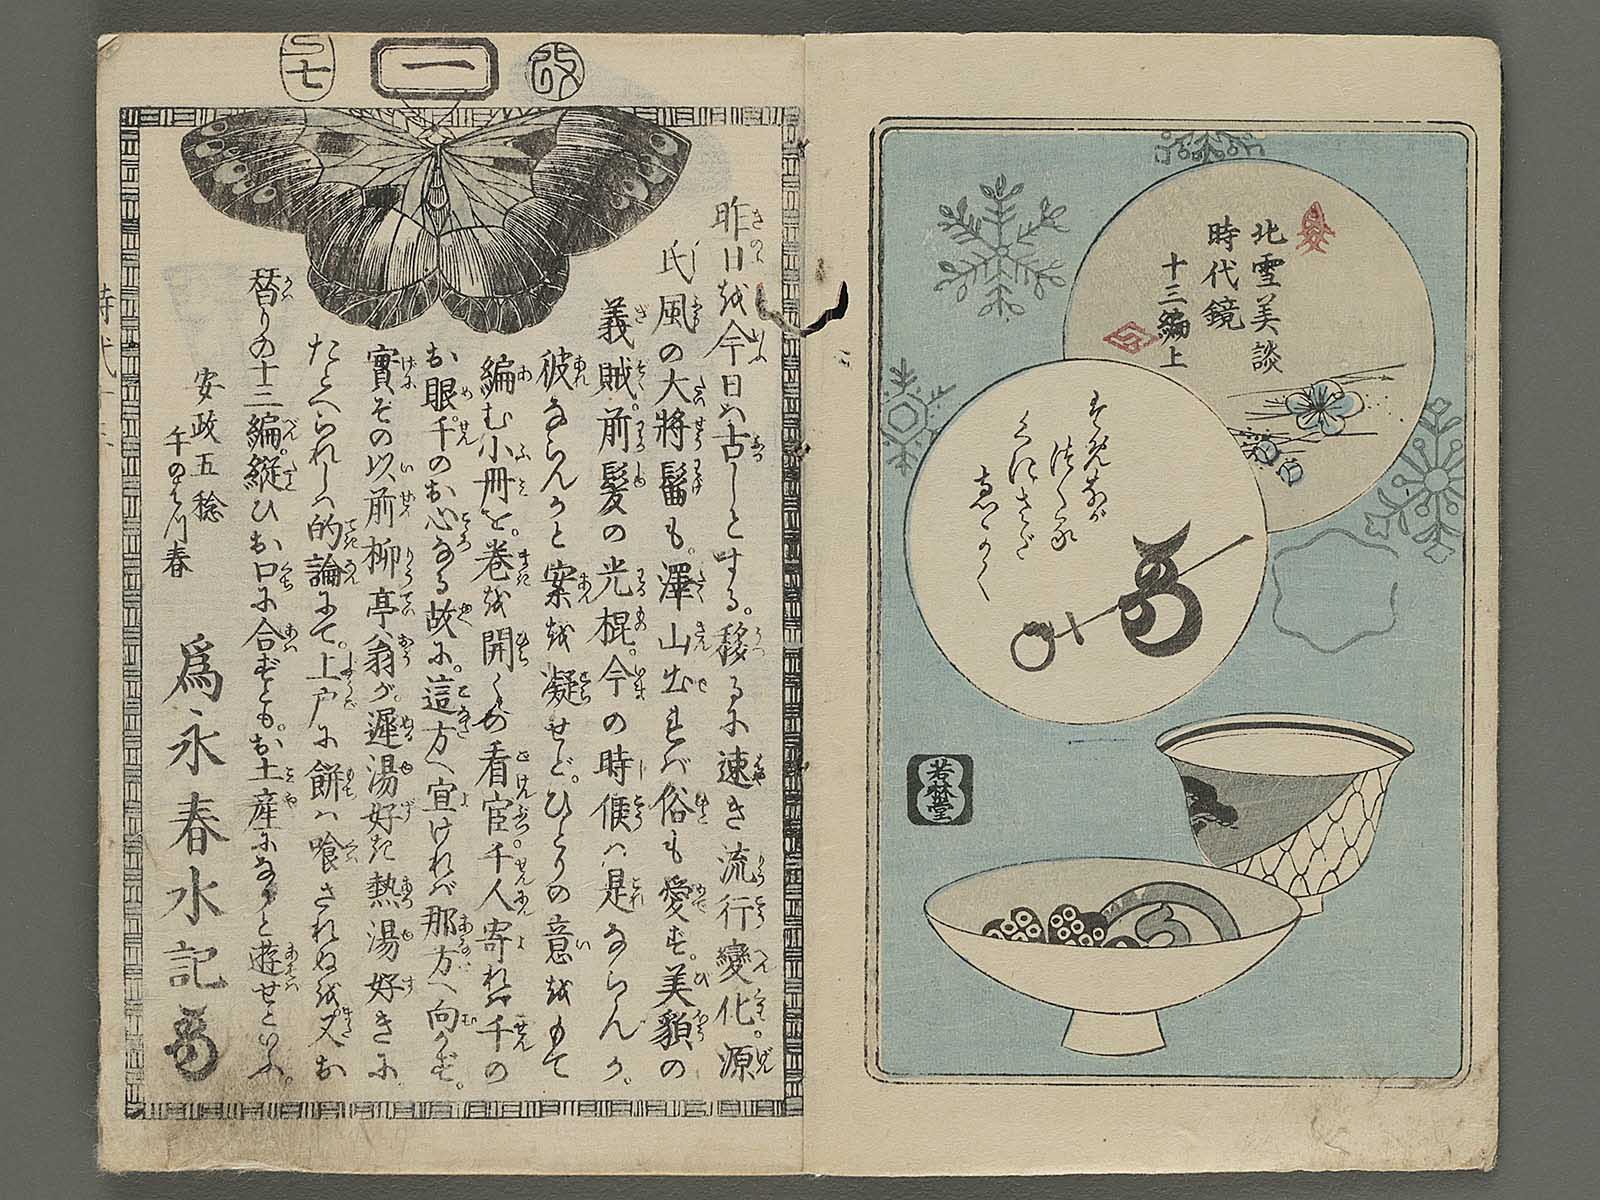 北雪美談
時代鏡
十三編上
若林堂
改
一
巳七
昨日を今日ハ古しとする。移るに速き流行變化。源
氏風の大將髷も。澤山出れバ俗も愛ず。美貌の
義賊。前髪の光棍。今の時候ハ是ならんか。
彼ならんかと案を凝せど。ひとりの意をもて
編む小冊を。巻を開くの看官千人寄れバ千の
お眼。千のお心なる故に。這方へ宜ければ那方へ向かず。
實ぞの以前柳亭翁が。遲湯好き熱湯好きに
たとへられしハ的論にて。上戸に餅ハ喰されぬを。又お
替りの十三編。縦ひお口に合ずとも。お土産になりと遊せといふ。
安政五稔
午のはつ春
為永春水記